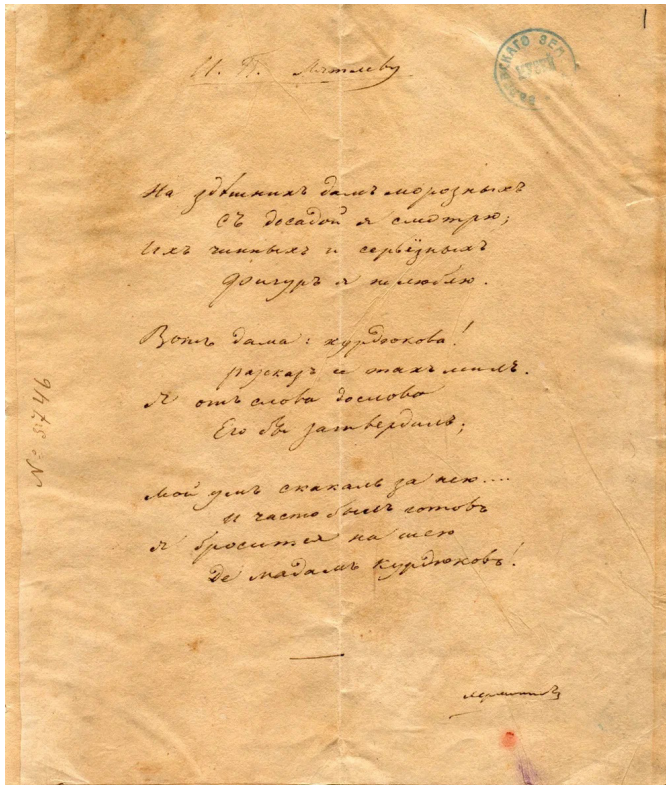 1
И. П. Мятлеву
На здѣшнихъ дамъ морозныхъ
Съ досадой я смотрю;
Ихъ чинныхъ и серьёзныхъ
Фигуръ я не люблю.
Вотъ дама: курдюкова!
разсказъ ея такъ милъ.
Я отъ слова дослова
Его бы затвердилъ;
Мой умъ скакалъ за нею....
И часто былъ готовъ
Я броситься на шею
De мадамъ Курдюковъ!
Лермонтовъ
№ 9475